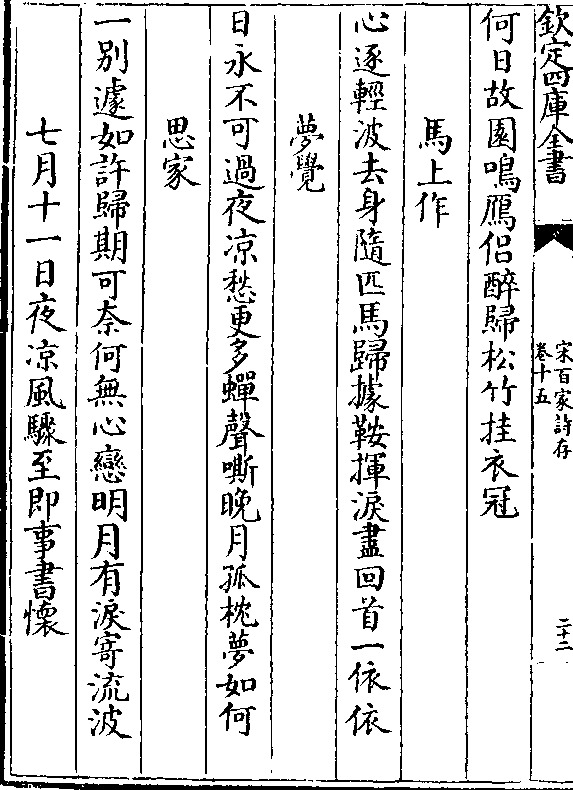 欽定四庫全書
宋百家詩存
卷十五
二十二
何日故園鳴鴈侣醉歸松竹挂衣冠
馬上作
心逐輕波去身隨匹馬歸據鞍揮淚盡回首一依依
夢覺
日永不可過夜凉愁更多蟬聲嘶晚月孤枕夢如何
思家
一别遽如許歸期可奈何無心戀明月有淚寄流波
七月十一日夜凉風驟至即事書懷